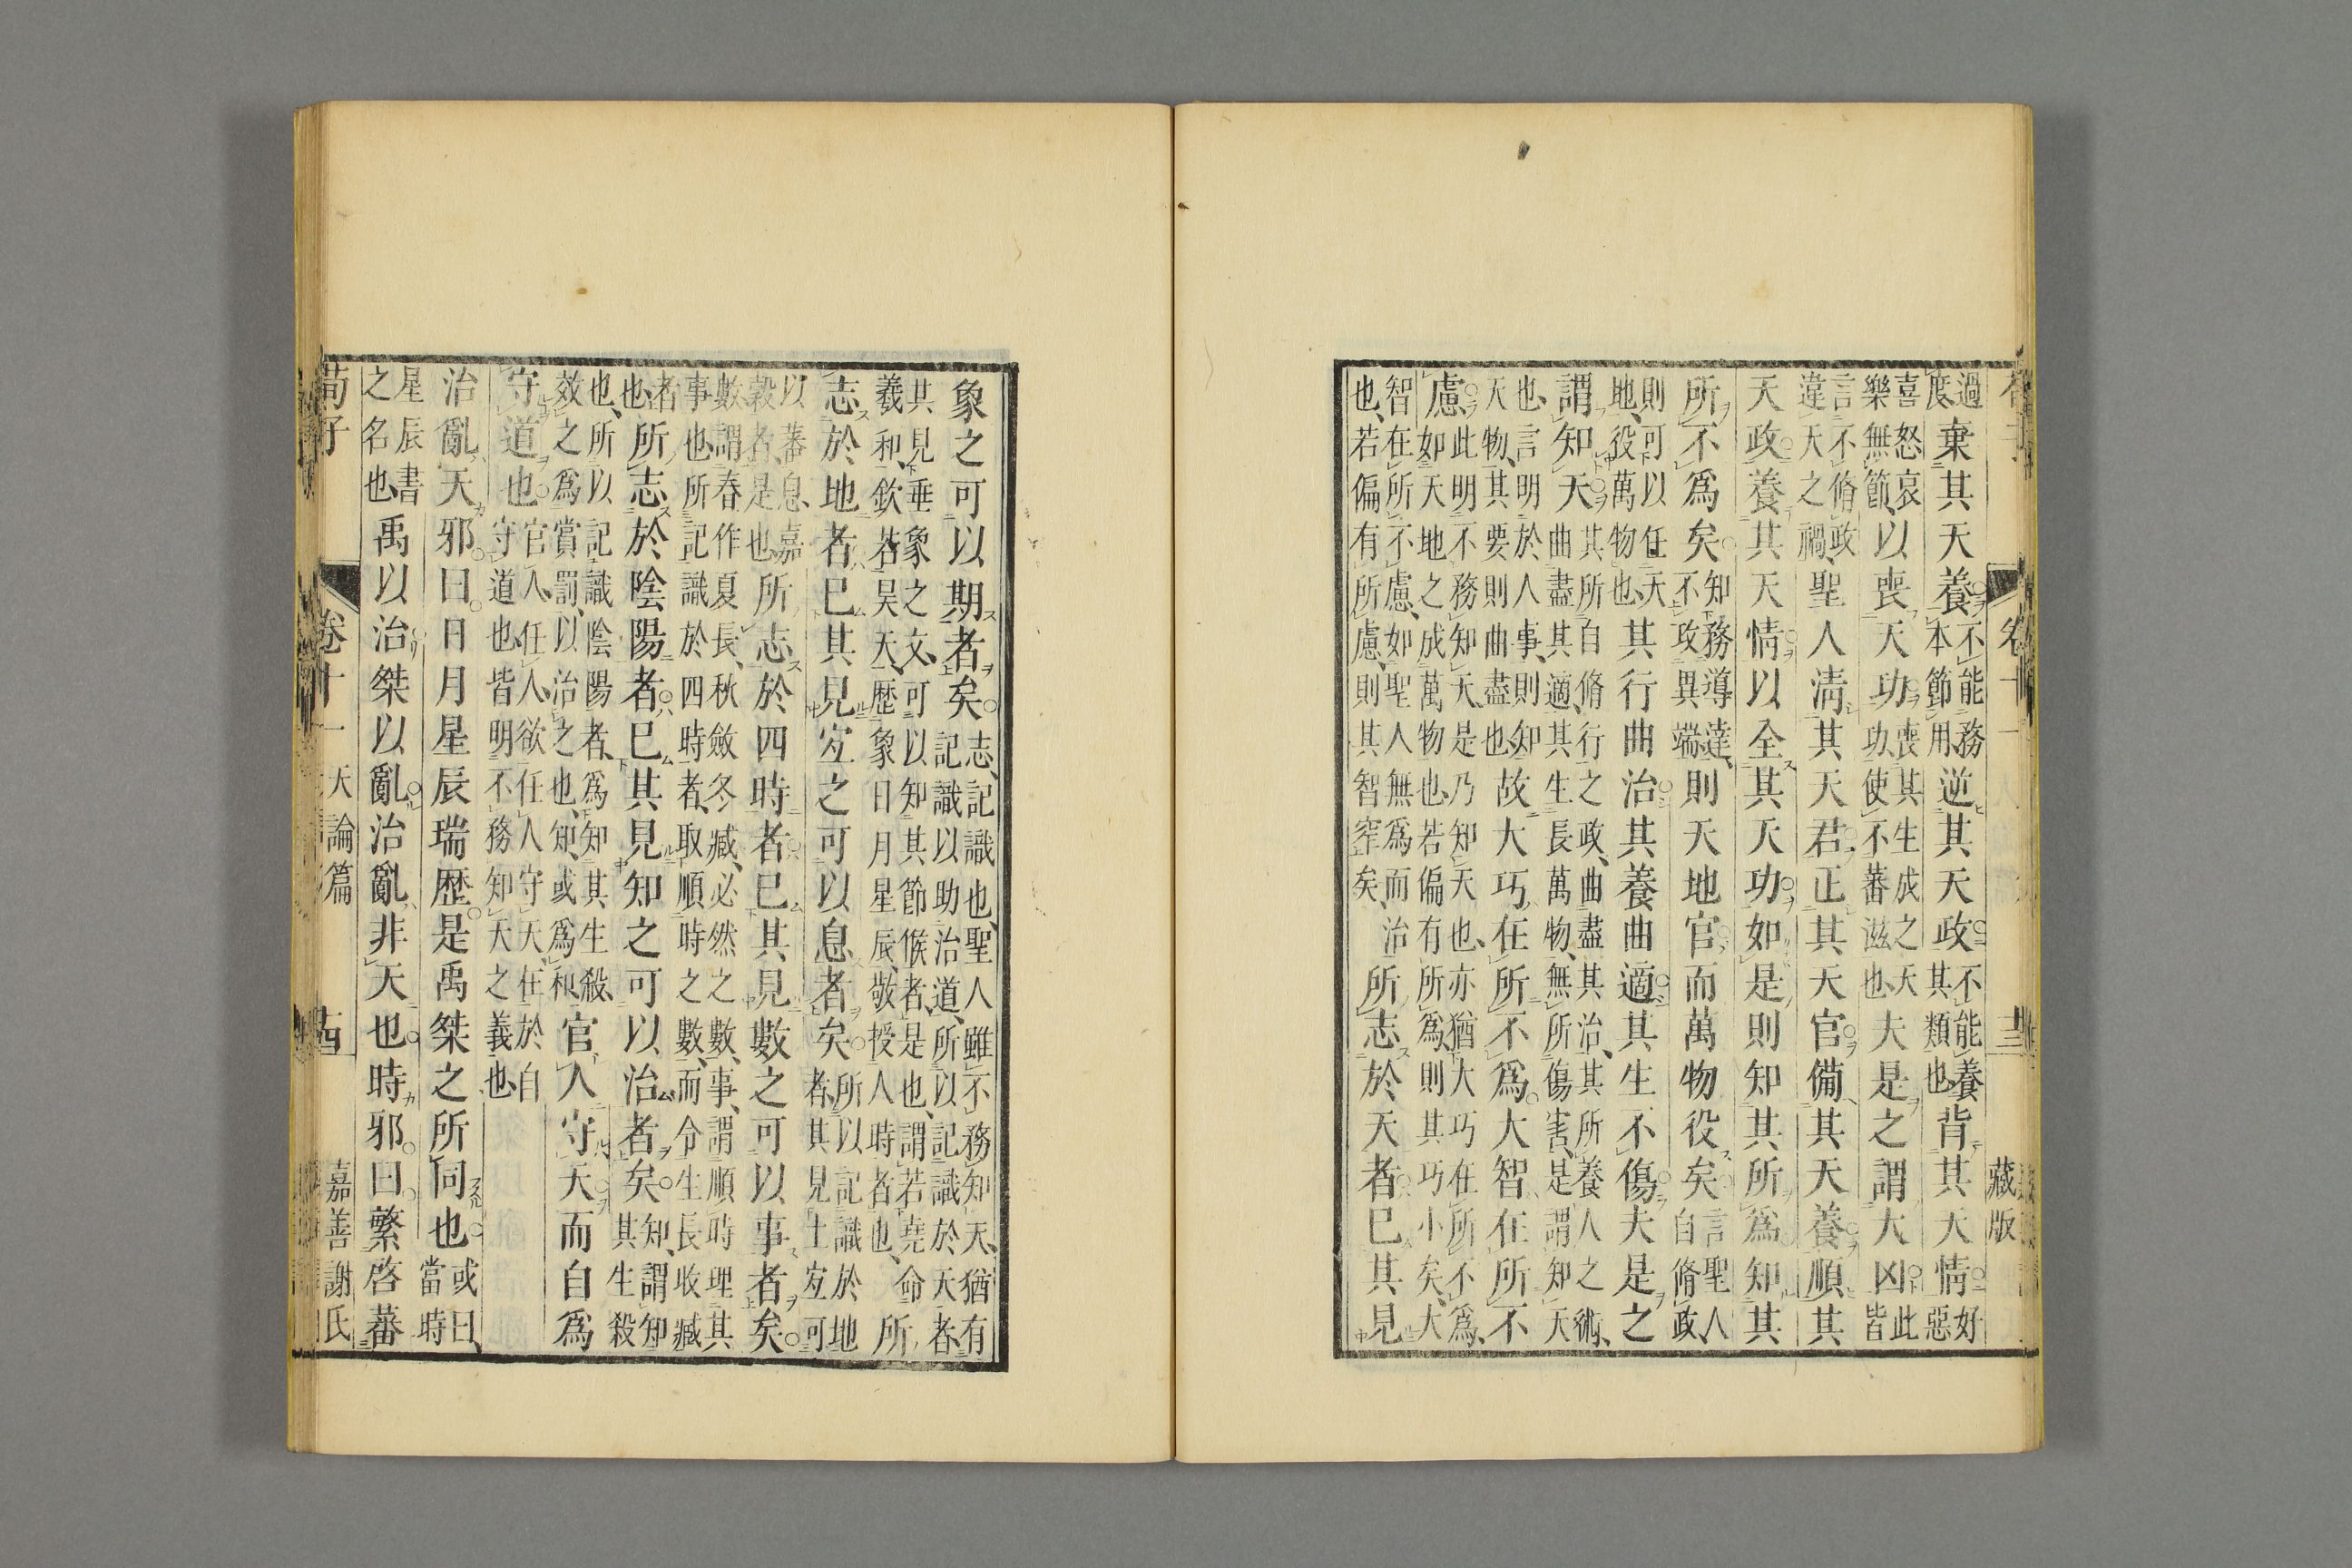 過度棄其天養不能務本節用逆其天政不能養其類也背其天情好惡
喜怒哀樂無節以喪天功喪其生成之天功使不蕃滋也夫是之謂大凶此皆
言不脩政違天之禍聖人淸其天君正其天官備其天養順其
天政養其天情以全其天功如是則知其所爲知其
所不爲矣知務導達不攻異端則天地官而萬物役矣言聖人自脩政
則可以任天地役萬物也其行曲治其養曲適其生不傷夫是之
謂知天其所自脩行之政曲盡其治其所養人之術曲盡其適其生長萬物無所傷害是謂知天
也言明於人事則知天物其要則曲盡也故大巧在所不爲大智在所不
慮此明不務知天是乃知天也亦猶大巧在所不爲如天地之成萬物也若偏有所爲則其巧小矣大
智在所不慮如聖人無爲而治也若偏有所慮則其智窄矣所志於天者已其見
象之可以期者矣志記識也聖人雖不務知天猶有記識以助治道所以記識於天者
其見垂象之文可以知其節候者是也謂若堯命羲和欽若昊天歷象日月星辰敬授人時者也所
志於地者已其見宜之可以息者矣所以記識於地者其見土宜可
以蕃息嘉穀者是也所志於四時者已其見數之可以事者矣
數謂春作夏長秋斂冬臧必然之數事謂順時理其事也所記識於四時者取順時之數而令生長收臧
者也所志於陰陽者已其見知之可以治者矣知謂知其生殺
也所以記識陰陽者爲知其生殺效之爲賞罰以治之也知或爲和官人守天而自爲
守道也官人任人欲任人守天在於自守道也皆明不務知天之義也
治亂天邪曰日月星辰瑞歷是禹桀之所同也或曰當時
星辰書之名也禹以治桀以亂治亂非天也時邪曰繁啓蕃
荀子
卷十一
天論篇
十四
嘉善謝氏
十三
藏版